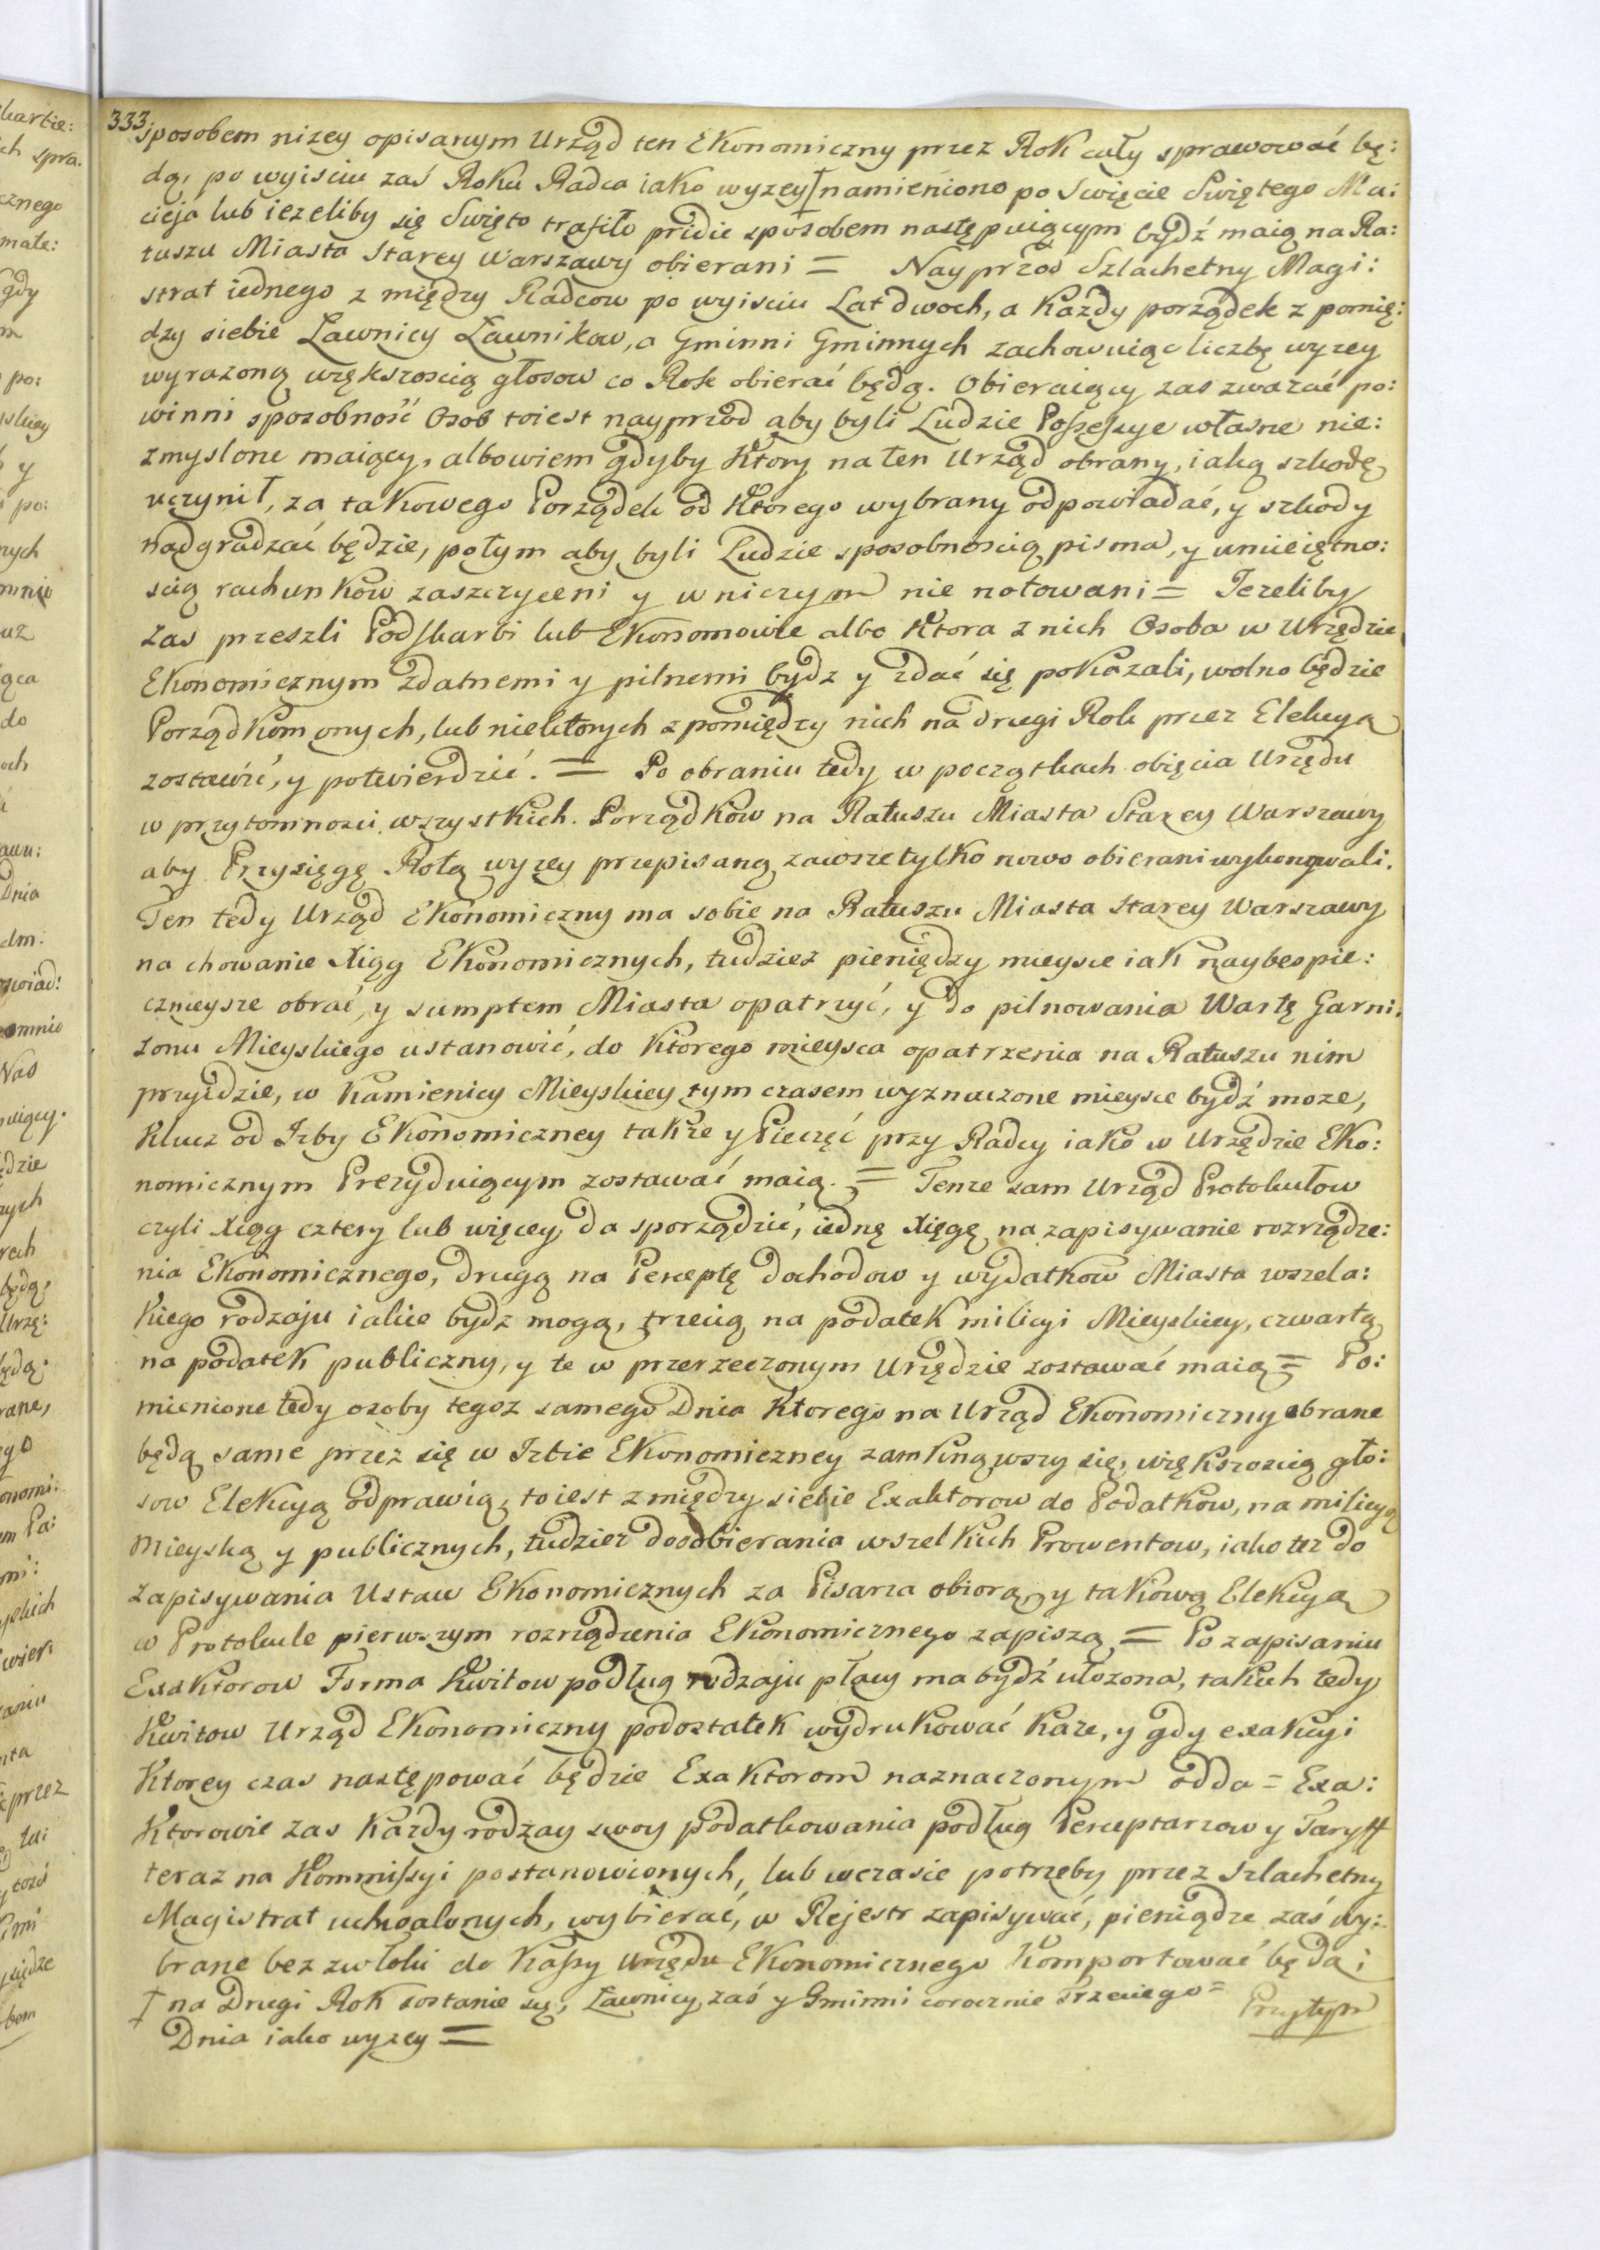 333
sposobem nizey opisanym Urząd ten Ekonomiczny przez Rok cały sprawować bę:
dą, po wyisciu zaś Roku Radca iako wyzey ‡ namieniono po Swięcie Swiętego Ma:
cieja lub iezeliby się Swięto trafiło pridie sposobem następuiącym bydź maią na Ra:
tuszu Miasta Starey Warszawy obierani = Nayprzod Szlachetny Magi:
strat iednego z między Radcow po wyisciu Lat dwoch, a Kazdy porządek z pomię:
dzy siebie Ławnicy Ławnikow, a Gminni Gminnych zachowuiąc liczbę wyzey
wyrazoną większoscią głosow co Rok obierać będą. Obieraiący zas zwazać po:
winni sposobność Osob toiest nayprzod aby byli Ludzie Possessye własne nie:
zmyslone maiący, albowiem gdyby Ktory na ten Urząd obrany, iaką szkodę
uczynił, za takowego Porządek od Ktorego wybrany odpowiadać, y szkody
nadgradzać będzie, potym aby byli Ludzie sposobnoscią pisma, y umieiętno:
scią rachunkow zaszczyceni y w niczym nie notowani = Jezeliby
zas przeszli Podskarbi lub Ekonomowie albo Ktora z nich Osoba w Urzędzie
Ekonomicznym zdatnemi y pilnemi bydz y zdać się pokazali, wolno będzie
Porządkom onych, lub niektorych z pomiędzy nich na drugi Rok przez Elekcyą
zostawić, y potwierdzić. = Po obraniu tedy w początkach obięcia Urzędu
w przytomnosci wszystkich Porządkow na Ratuszu Miasta Starey Warszawy
aby Przysięgę Rotą wyzey przepisaną zawsze tylko nowo obierani wykonywali.
Ten tedy Urząd Ekonomiczny ma sobie na Ratuszu Miasta Starey Warszawy
na chowanie Xiąg Ekonomicznych, tudziez pieniędzy mieysce iak naybespie:
cznieysze obrać, y sumptem Miasta opatrzyć, y do pilnowania Wartę Garni:
zonu Mieyskiego ustanowić, do Ktorego mieysca opatrzenia na Ratuszu nim
przyidzie, w Kamienicy Mieyskiey tym czasem wyznaczone mieysce bydź moze,
Klucz od Izby Ekonomiczney takze y Pieczęć przy Radcy iako w Urzędzie Eko:
nomicznym Prezyduiącym zostawać maią. = Tenze sam Urząd Protokułow
czyli Xiąg cztery lub więcey da sporządzić, iednę Xięgę na zapisywanie rozrządze:
nia Ekonomicznego, drugą na Perceptę dochodow y wydatkow Miasta wszela:
kiego rodzaju iakie bydz mogą, trzecią na podatek milicyi Mieyskiey, czwartą
na podatek publiczny, y te w przerzeczonym Urzędzie zostawać maią = Po:
mienione tedy osoby tegoz samego Dnia Ktorego na Urząd Ekonomiczny obrane
będą same przez się w Izbie Ekonomiczney zamknąwszy się, większoscią gło:
sow Elekcyą odprawią, toiest z między siebie Exaktorow do Podatkow, na milicyą
Mieyską y publicznych, tudziez do odbierania wszelkich Prowentow, iako tez do
zapisywania Ustaw Ekonomicznych za Pisarza obiorą, y takową Elekcyą
w Protokule pierwszym rozrządzenia Ekonomicznego zapiszą = Po zapisaniu
Exaktorow Forma Kwitow podług rodzaju płacy ma bydź ułozona, takich tedy
Kwitow Urząd Ekonomiczny podostatek wydrukować Kaze, y gdy exakcyi
Ktorey czas następować będzie Exaktorom naznaczonym odda = Exa:
Ktorowie zas Kazdy rodzay swoy podatkowania podług Perceptarzow y Taryff
teraz na Kommissyi postanowionych, lub w czasie potrzeby przez Szlachetny
Magistrat uchwalonych, wybierać, w Rejestr zapisywać, pieniądze zaś wy:
brane bez zwłoki do Kassy Urzędu Ekonomicznego Komportować będą;
‡ na Drugi Rok zostanie się, Ławnicy zaś y Gminni corocznie Trzeciego =
Dnia iako wyzey =
Przytym